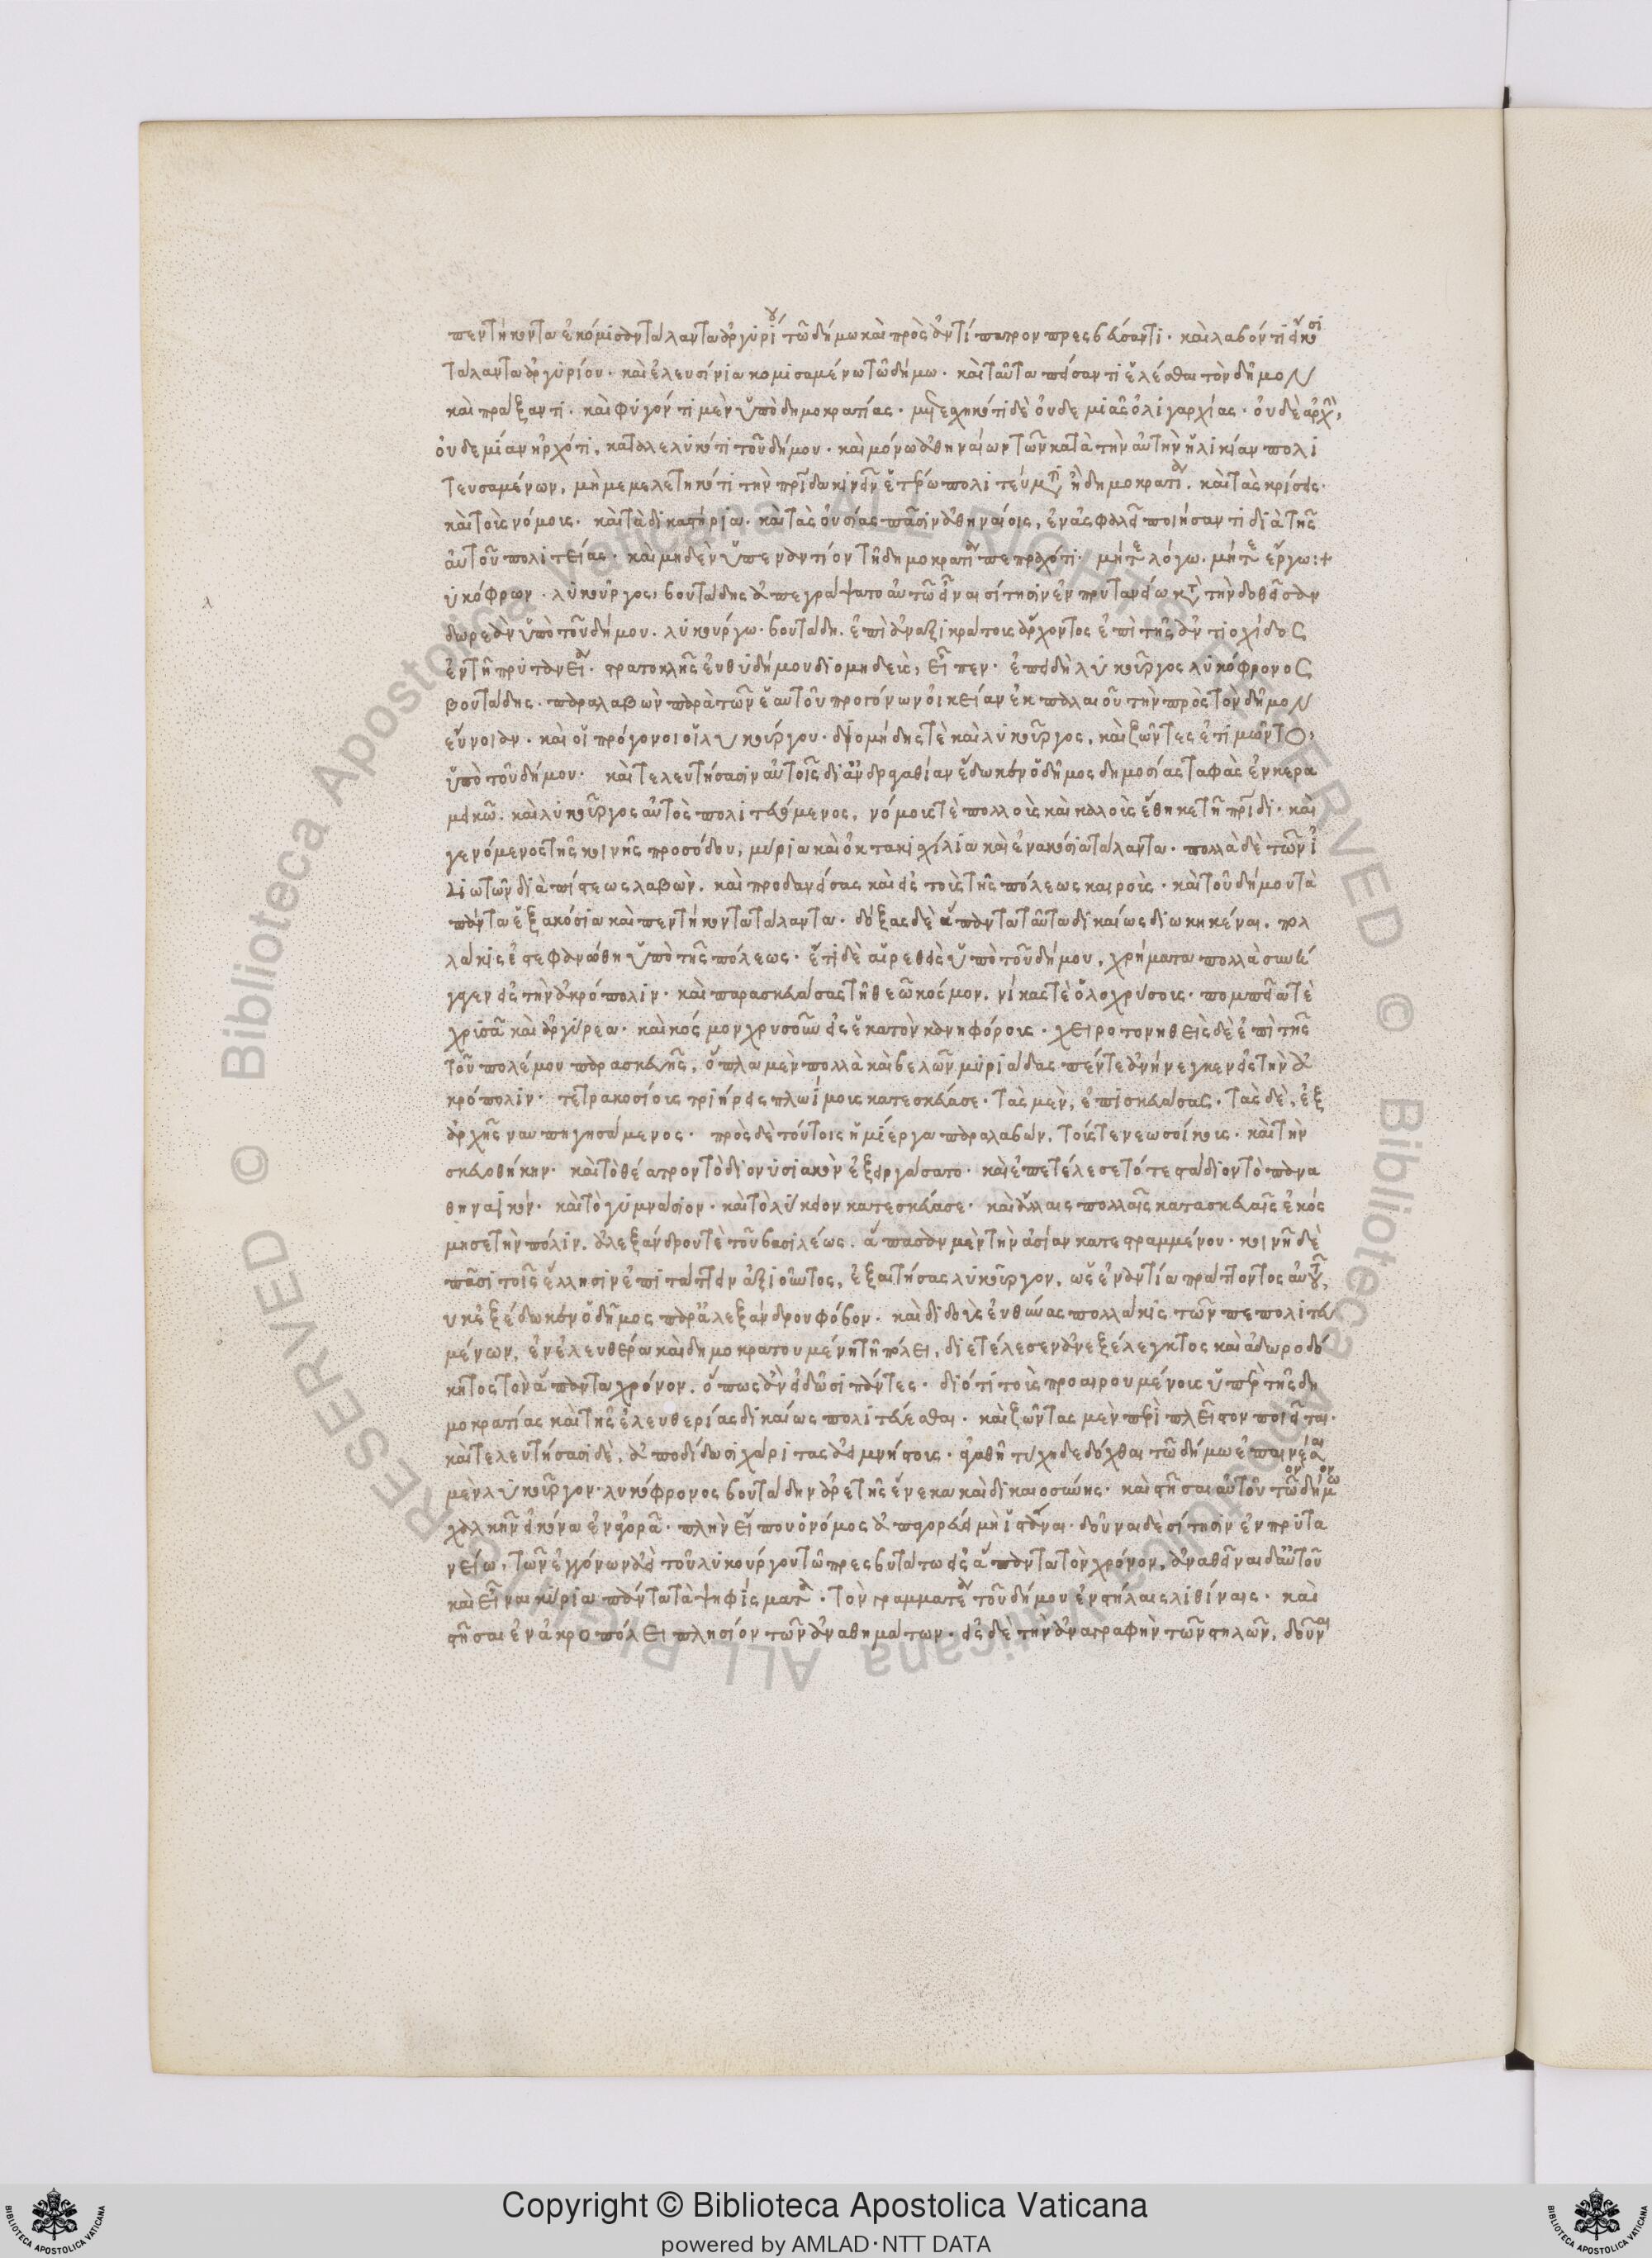 πεντήκοντα ἐκόμισεν τάλαντα ἀργυρίου τῶ δήμω καὶ πρὸς ἀντίπατρον πρεσβεύσαντι· καὶ λαβόντι εἴκοσι
τάλαντα ἀργυρίου· καὶ ἐλευσίνια κομισαμένω τῶ δήμω· καὶ ταῦτα πείσαντι ἑλέσθαι τὸν δῆμον
καὶ πράξαντι· καὶ φυγόντι μὲν ὑπὸ δημοκρατίας· μετεσχηκότι δὲ οὐδεμιᾶς ὀλιγαρχίας· οὐδὲ ἀρχὴν
οὐδεμίαν ἠρχότι, καταλελυκότι τοῦ δήμου· καὶ μόνω ἀθηναίων τῶν κατὰ τὴν αὐτὴν ἡλικίαν πολι
τευσαμένων, μὴ μεμελετηκότι τὴν πατρίδα κινεῖν ἑτέρω πολιτεύματι ἢ δημοκρατία. καὶ τὰς κρίσεις·
καὶ τοὺς νόμους· καὶ τὰ δικαστήρια· καὶ τὰς οὐσίας πᾶσιν ἀθηναίοις, ἐν ἀσφαλεῖ ποιήσαντι διὰ τῆς
αὐτοῦ πολιτείας· καὶ μηδὲν ὑπεναντίον τῆ δημοκρατία πεπραχότι· μήτε λόγω. μήτε ἔργω:+
υκόφρων· λυκοῦργος, βουτάδης ἀπεγράψατο αὐτῶ εἶναι σίτησιν ἐν πρυτανείω κατὰ τὴν δοθεῖσαν
δωρεὰν ὑπὸ τοῦ δήμου. λυκούργω· βουτάδη. ἐπὶ ἀναξικράτους ἄρχοντος ἐπὶ τῆς ἀντιοχίδος
ἕκτης πρυτανεία· στρατοκλῆς εὐθυδήμου διομηδεὺς, εἶπεν· ἐπειδὴ λυκοῦργος λυκόφρονος
βουτάδης. παραλαβὼν παρὰ τῶν ἑαυτοῦ προγόνων οἰκείαν ἐκ παλαιοῦ τὴν πρὸς τὸν δῆμον
εὔνοιαν· καὶ οἱ πρόγονοι οἱ λυκούργου· διομήδης τὲ καὶ λυκοῦργος, καὶ ζῶντες ἐτιμῶντο,
ὑπὸ τοῦ δήμου· καὶ τελευτήσασιν αὐτοῖς δι' ἀνδραγαθίαν ἔδωκεν ὁ δῆμος δημοσίας ταφὰς ἐν κερα
μεικῶ. καὶ λυκοῦργος αὐτὸς πολιτευόμενος, νόμους τὲ πολλοὺς καὶ καλοὺς ἔθηκε τῆ πατρίδι· καὶ
γενόμενος τῆς κοινῆς προσόδου, μύρια καὶ ὀκτακισχίλια καὶ ἐνακόσια τάλαντα· πολλὰ δὲ τῶν ἰ
διωτῶν διὰ πίστεως λαβὼν. καὶ προδανείσας καὶ εἰς τοὺς τῆς πόλεως καιροὺς· καὶ τοῦ δήμου τὰ
πάντα ἑξακόσια καὶ πεντήκοντα τάλαντα· δόξας δὲ ἅπαντα ταῦτα δικαίως διωκηκέναι. πολ
λάκις ἐστεφανώθη ὑπὸ τῆς πόλεως· ἔτι δὲ αἱρεθεὶς ὑπὸ τοῦ δήμου, χρήματα πολλὰ συνή
γαγεν εἰς τὴν ἀκρόπολιν· καὶ παρασκευάσας τῆ θεῶ κόσμον. νίκας τὲ ὁλοχρύσους· πομπεῖα τὲ
χρυσᾶ καὶ ἀργύρεα· καὶ κόσμον χρυσοῦν εἰς ἑκατὸν κανηφόρους· χειροτονηθεὶς δὲ ἐπὶ τῆς
τοῦ πολέμου παρασκευῆς, ὅπλα μὲν πολλὰ καὶ βελῶν μυριάδας πέντε ἀνήνεγκεν εἰς τὴν ἀ
κρόπολιν· τετρακοσίους τριήρεις πλωίμους κατεσκεύασε· τὰς μὲν, ἐπισκευάσας· τὰς δὲ, ἐξ
ἀρχῆς ναυπηγησάμενος· πρὸς δὲ τούτοις ἡμίεργα παραλαβὼν, τούς τε νεωσοίκους· καὶ τὴν
σκευοθήκην· καὶ τὸ θέατρον τὸ διονυσιακὸν ἐξειργάσατο· καὶ ἐπετέλεσε τό τε στάδιον τὸ πανα
θηναικόν· καὶ τὸ γυμνάσιον· καὶ τὸ λύκειον κατεσκεύασε· καὶ ἄλλαις πολλαῖς κατασκευαῖς ἐκόσ
μησε τὴν πόλιν. ἀλεξάνδρου τὲ τοῦ βασιλέως. ἅπασαν μὲν τὴν ἀσίαν κατεστραμμένου· κοινῆ δὲ
πᾶσι τοῖς ἕλλησιν ἐπιτάττειν ἀξιοῦντος, ἐξαιτήσας λυκοῦργον, ὡς ἐναντία πράττοντος αὐτοῦ,
υκ ἐξέδωκεν ὁ δῆμος παρ' ἀλεξάνδρου φόβον· καὶ διδοὺς εὐθύνας πολλάκις τῶν πεπολιτευ
μένων, ἐν ἐλευθέρα καὶ δημοκρατουμένη τῆ πόλει, διετέλεσεν ἀνεξέλεγκτος καὶ ἀδωροδό
κητος τὸν ἅπαντα χρόνον. ὅπως ἂν εἰδῶσι πάντες· διότι τοὺς προαιρουμένους ὑπὲρ τῆς δη
μοκρατίας καὶ τῆς ἐλευθερίας δικαίως πολιτεύεσθαι· καὶ ζῶντας μὲν περὶ πλείστου ποιεῖται·
καὶ τελευτήσασι δὲ, ἀποδίδωσι χάριτας ἀειμνήστους· ἀγαθῆ τύχη δεδόχθαι τῶ δήμω ἐπαινέσαι
μὲν λυκοῦργον· λυκόφρονος βουτάδην ἀρετῆς ἕνεκα καὶ δικαιοσύνης· καὶ στῆσαι αὐτοῦ τὸν δῆμον
χαλκῆν εἰκόνα ἐν ἀγορᾶ· πλὴν εἴ που ὁ νόμος ἀπαγορεύει μὴ ἱστάναι· δοῦναι δὲ σίτησιν ἐν πρυτα
νείω, τῶν ἐγγόνων ἀεὶ τοῦ λυκούργου τῶ πρεσβυτάτω εἰς ἅπαντα τὸν χρόνον, ἀναθεῖναι δ' αὐτοῦ
καὶ εἶναι κύρια πάντα τὰ ψηφίσματα· τὸν γραμματέα τοῦ δήμου ἐν στήλαις λιθίναις· καὶ
στῆσαι ἐν ἀκροπόλει πλησίον τῶν ἀναθημάτων· εἰς δὲ τὴν ἀναγραφὴν τῶν στηλῶν, δοῦναι
© Biblioteca Apostolica Vaticana ALL RIGHTS RESERVED
© Biblioteca Apostolica Vaticana ALL RIGHTS RESERVED
Copyright © Biblioteca Apostolica Vaticana
powered by AMLAD·NTT DATA
BIBLIOTECA APOSTOLICA VATICANA
BIBLIOTECA APOSTOLICA VATICANA